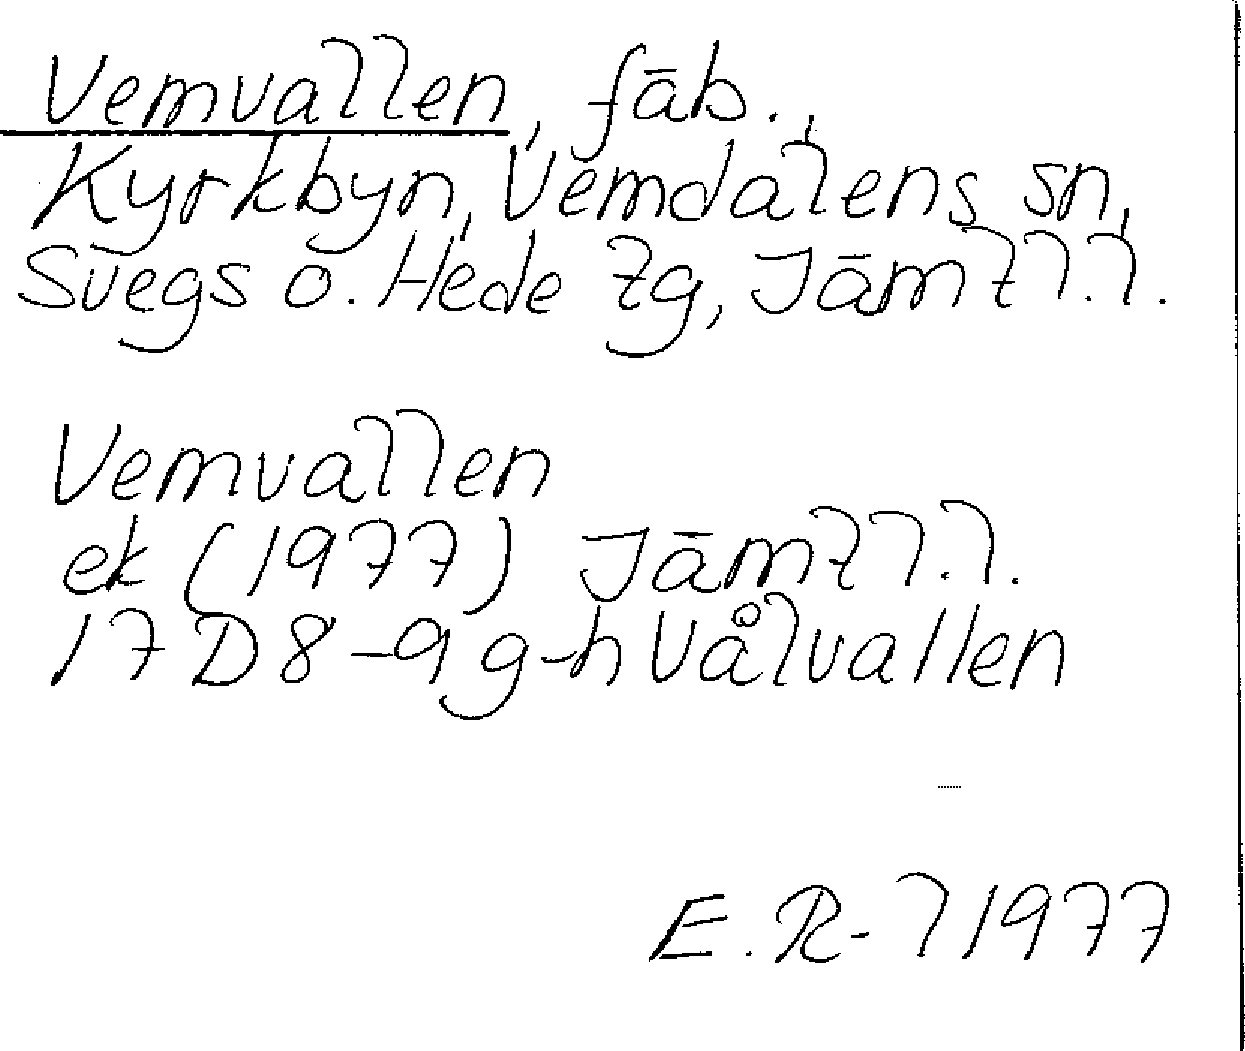 Vemvallen, fāb.,
Kyrkbyn, Vemdalens sn,
Svegs o. Hede tg, Jāmtl.l.
Vemvallen
ek (1977) Jāmtl.l.
17 D 8-9 g-h Vålvallen
E. R-l 1977